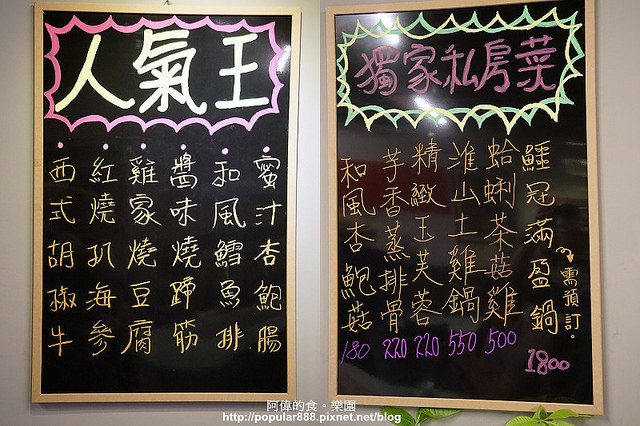 人氣王
蜜汁杏鮑腸
和風鱈魚排
醬味燒蹄筋
雞家燒豆腐
紅燒扒海參
西式胡椒牛
獨家私房菜
鱷冠滿盈鍋
需預訂。
1800
蛤蜊茶菇雞
500
淮山土雞鍋
550
精緻玉芙蓉
220
芋香蒸排骨
220
和風杏鮑菇
180
阿偉的食。樂園
http://popular888.pixnet.net/blog